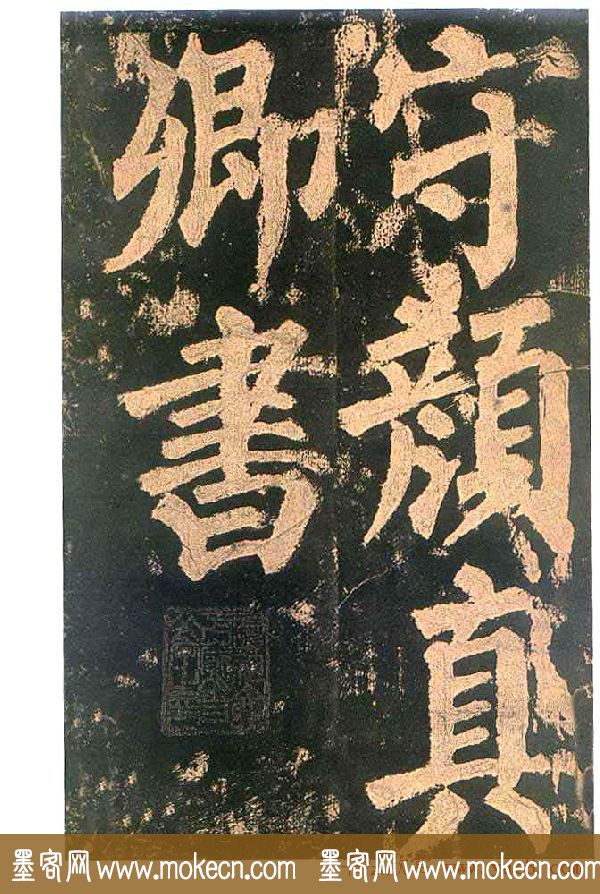 守顏真
卿書
墨客网 www.mokecn.com 墨客网 www.mokecn.com